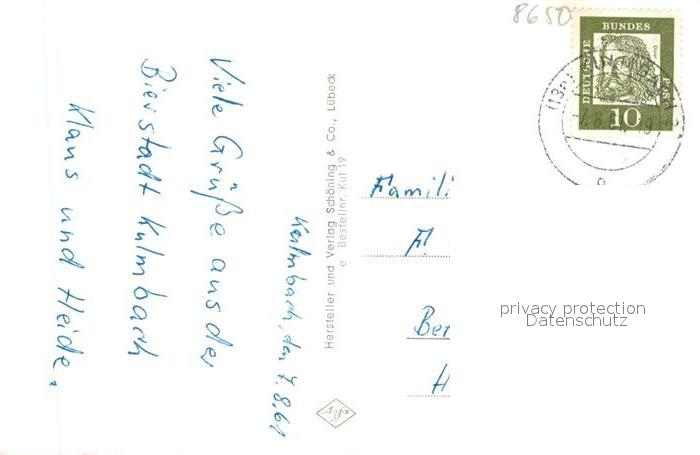 8650
DEUTSCHE
BUNDES
POST
10
Kulmbach, den 7.8.61
Viele Grüße aus der
Bierstadt Kulmbach
Klaus und Heide.
Hersteller und Verlag Schöning & Co., Lübeck
e Bestellnr. Kul 19
Famili
Fl
Ber
H
privacy protection
Datenschutz